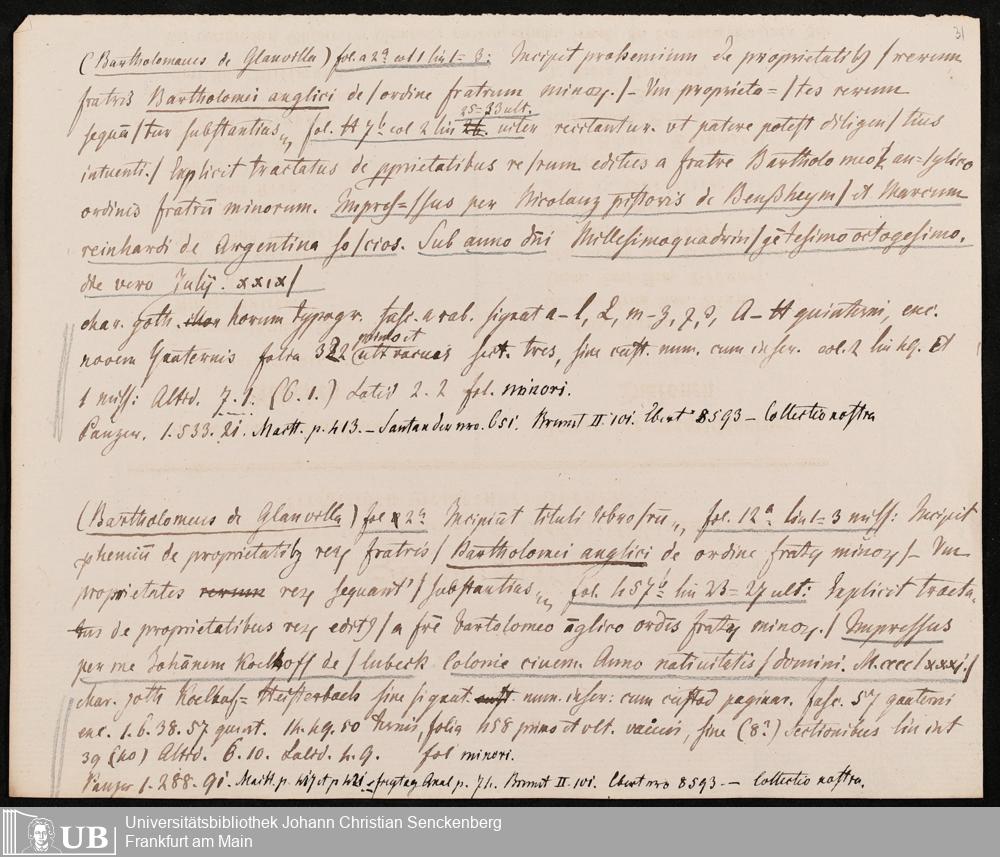 31
(Bartholomaeus de Glanvilla) fol. a 2ª col 1 lin 1= 3: Incipit prohemium De proprietatibꝫ / rerum
fratris Bartholomei anglici de / ordine fratrum minoꝝ. /– Um proprieta= / tes rerum
25=33 ult.
sequā / tur substantias „ fol. H 7ᵇ col 2 lin uiter recitantur. vt patere potest diligen / tius
intuenti. / Explicit tractatus de pprietatibus re / rum editus a fratre Bartholomeo an= / glico
ordinis fratrū minorum. Impres= / sus per Nicolauꝫ pistoris de Benßheym / et Marcum
reinhardi de Argentina so / cios. Sub anno dn̄i Millesimoquadrin / gētesimo octogesimo.
die vero Julij. xxix /
char. goth. horum typogr. fasc. a rab. signat a – l, L, m – z, ꝫ, ꝯ, A – H quinterni, exc.
novem Quaternis folia 322 (primo et ult vacuis sect. tres, sine cust. num. cum inscr. col. 2 lin 49. Et
1 miss: Altid. 7. 1. (6. 1.) Latid 2. 2 fol. minori.
Panzer. 1. 533. 21. Maitt. p. 413. – Santander nro. 651. Brunet II. 101. Ebert 8593 – Collectio nostra
(Bartholomeus de Glanvilla) fol 2ª Incipiūt tituli libro / rū „ fol. 12ª lin 1= 3 miss: Incipit
phemiū de proprietatibꝫ reꝝ fratris / Bartholomei anglici de ordine fratꝝ minoꝝ /– Um
proprietates rerum reꝝ sequant' / substantias „ fol. 457ᵇ lin 23= 27 ult: Explicit tracta-
tus de proprietatibus reꝝ editꝰ / a frē bartolomeo āglico ordīs fratꝝ minoꝝ. / Impressus
per me Johānem Koelhoff de / lubeck Colonie ciuem. Anno natiuitatis / domini. M.cccclxxxj. /
char. goth Koelhof= Heisterbach sine signat. num. inscr: cum custod paginar. fasc. 57 quaterni
exc. 1. 6. 38. 57 quint. 14. 49. 50 ternis, folia 458 primo et vlt. vacuis, sine (8?) sectionibus lin int
39 (40) Altid. 6. 10. Latid. 4. 9. fol minori.
Panzer 1. 288. 91. Maitt p. 417 et p 421 – freytag Anal p. 74. Brunet II. 101. Ebert nro 8593 – Collectio nostra.
UB
Universitätsbibliothek Johann Christian Senckenberg
Frankfurt am Main